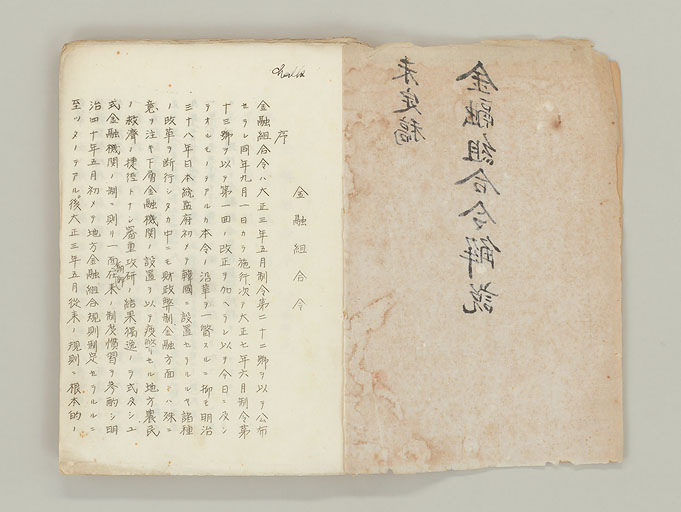 金融組合令解説
未定稿
金融組合令
序
金融組合令ハ大正三年五月制令第二十二號ヲ以テ公布
セラレ同年九月一日カラ施行次テ大正七年六月制令第
十三號ヲ以テ第一回ノ改正ヲ加ヘラレ以テ今日ニ及ン
テオルモノテアルカ本令ノ沿革ヲ一瞥スルニ抑モ明治
三十八年日本統監府初メテ韓國ニ設置セラルルヤ諸種
ノ改革ヲ断行シタカ中ニモ財政幣制金融方面ニハ殊ニ
意ヲ注キ下層金融機関ノ設置ヲ以テ疲弊セル地方農民
ノ救濟ノ捷径トナシ審重攻研ノ結果獨逸ノラ式及シユ
式金融機関ノ制ニ則リ一面朝鮮在来ノ制度慣習ヲ参酌シ明
治四十年五月初メテ地方金融組合規則制定セラルルニ
至ツタノテアル後大正三年五月従来ノ規則ニ根本的ノ